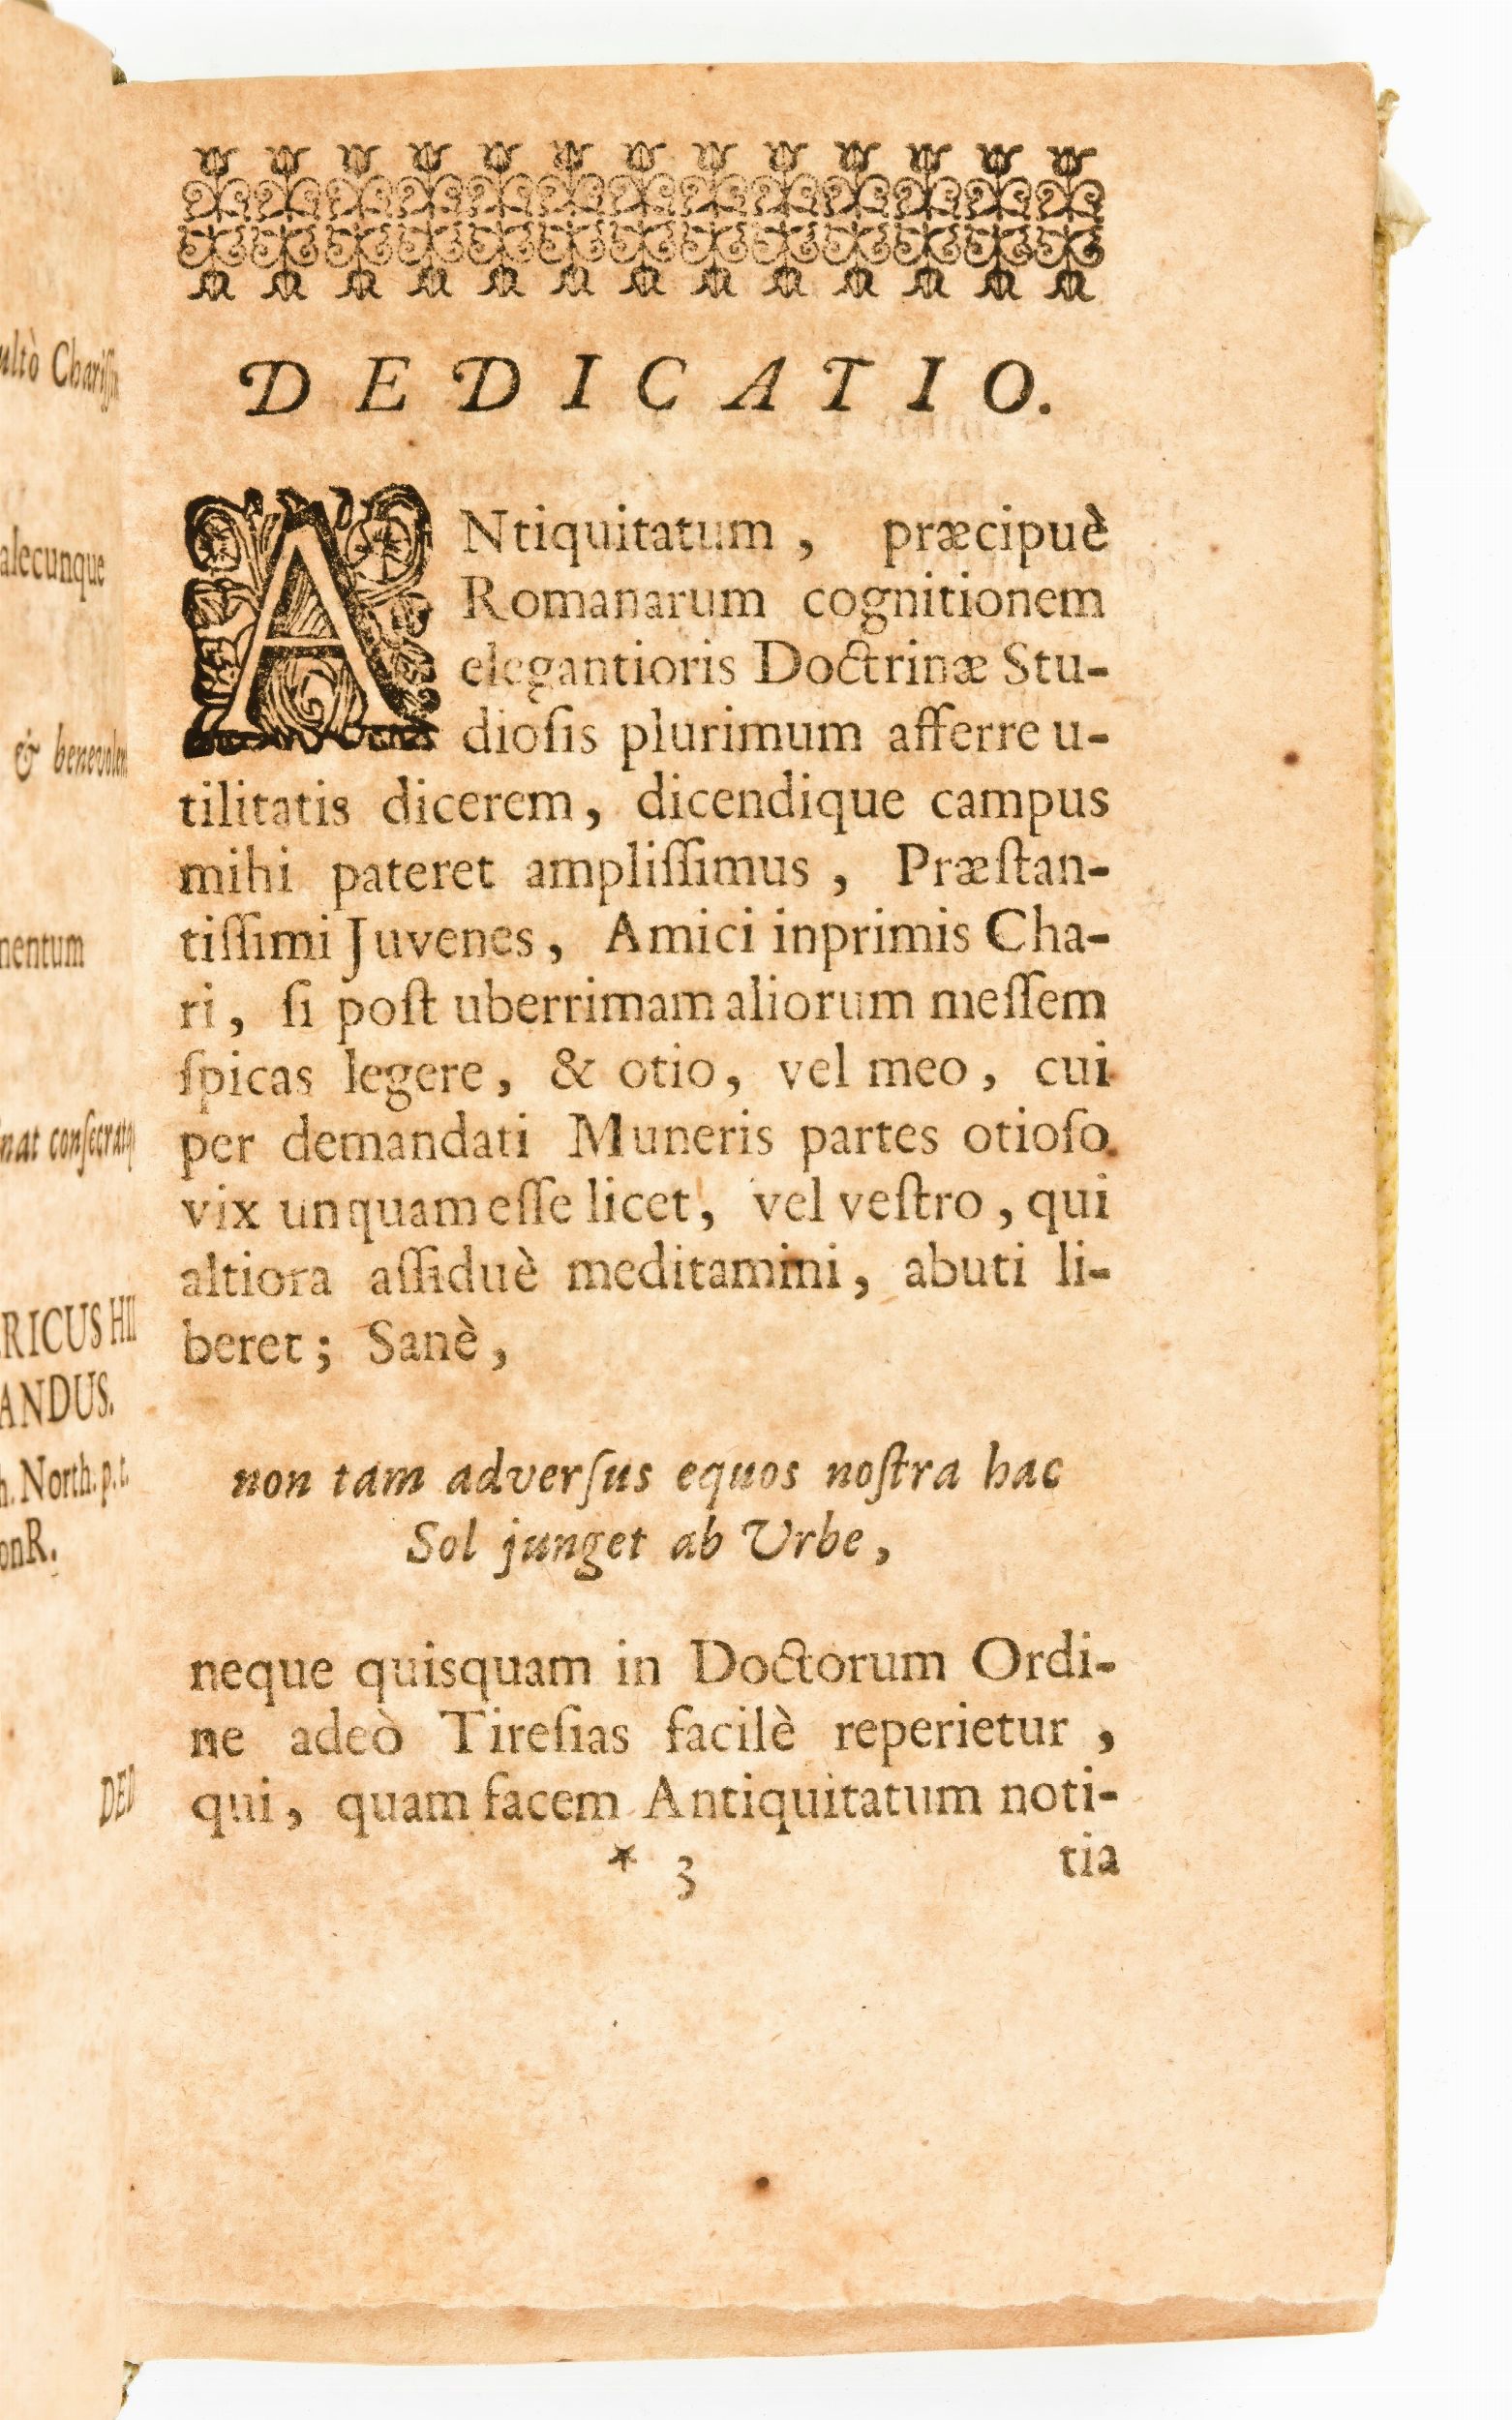 DEDICATIO.
ANtiquitatum, præcipuè
Romanarum cognitionem
elegantioris Doctrinæ Stu-
dioſis plurimum afferre u-
tilitatis dicerem, dicendique campus
mihi pateret ampliſſimus, Præſtan-
tiſſimi Juvenes, Amici inprimis Cha-
ri, ſi poſt uberrimam aliorum meſſem
ſpicas legere, & otio, vel meo, cui
per demandati Muneris partes otioſo
vix unquam eſſe licet, vel veſtro, qui
altiora aſſiduè meditamini, abuti li-
beret; Sanè,
non tam adverſus equos noſtra hac
Sol junget ab Urbe,
neque quisquam in Doctorum Ordi-
ne adeò Tireſias facilè reperietur,
qui, quam facem Antiquitatum noti-
* 3 tia
& benevolen
RICUS HIL
ANDUS.
North. p. t.
DED